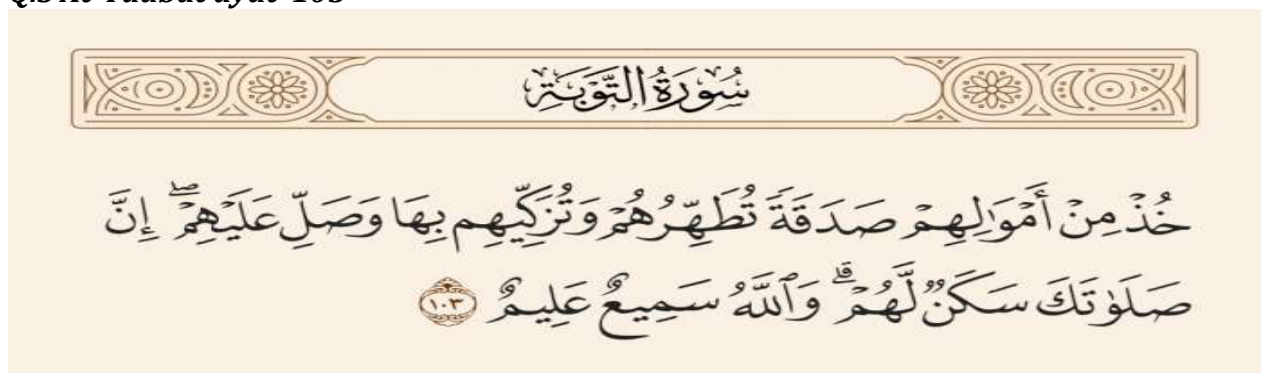 Q.S At-Taubat ayat 103
سُورَةُ التَّوۡبَةِ
خُذۡ مِنۡ أَمۡوَٰلِهِمۡ صَدَقَةٗ تُطَهِّرُهُمۡ وَتُزَكِّيهِم بِهَا وَصَلِّ عَلَيۡهِمۡۖ إِنَّ
صَلَوٰتَكَ سَكَنٞ لَّهُمۡۗ وَٱللَّهُ سَمِيعٌ عَلِيمٌ ١٠٣